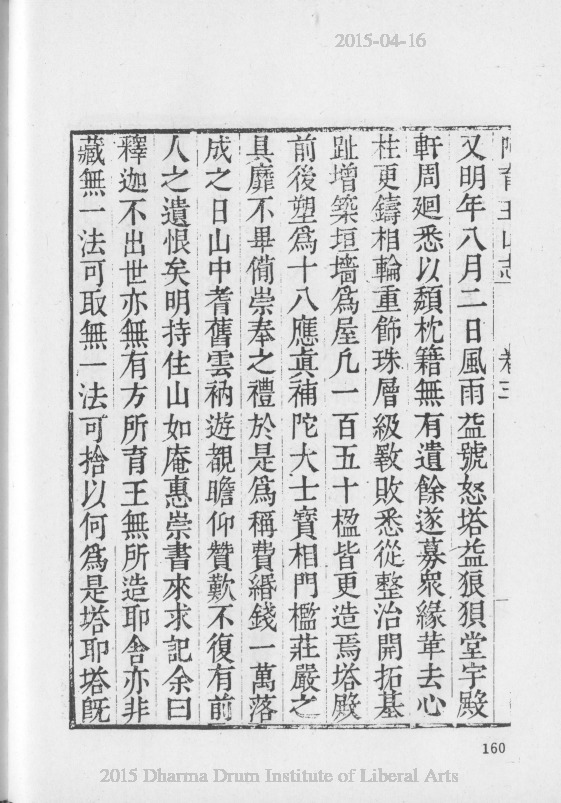 2015-04-16
阿育王山志 卷三
又明年八月二日風雨益號怒塔益狼狽堂宇殿
軒周廻悉以頹枕籍無有遺餘遂募衆緣革去心
柱更鑄相輪重飾珠層級斁敗悉從整治開拓基
趾增築垣墻爲屋凢一百五十楹皆更造焉塔殿
前後塑爲十八應眞補陀大士寶相門檻莊嚴之
具靡不畢備崇奉之禮於是爲稱費緡錢一萬落
成之日山中耆舊雲衲遊覩瞻仰贊歎不復有前
人之遺恨矣明持住山如庵惠崇書來求記余曰
釋迦不出世亦無有方所育王無所造耶舍亦非
藏無一法可取無一法可捨以何爲是塔耶塔旣
160
2015 Dharma Drum Institute of Liberal Arts